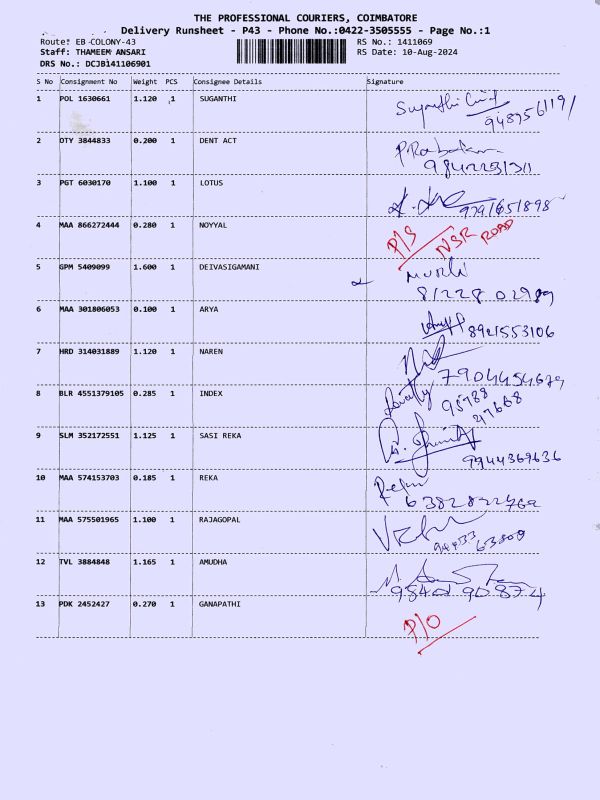 THE PROFESSIONAL COURIERS, COIMBATORE
Delivery Runsheet - P43 - Phone No.:0422-3505555 - Page No.:1
Route: EB-COLONY-43 RS No.: 1411069
Staff: THAMEEM ANSARI RS Date: 10-Aug-2024
DRS No.: DCJB141106901
S No Consignment No Weight PCS Consignee Details Signature
1 POL 1630661 1.120 1 SUGANTHI
9489561191
2 OTY 3844833 0.200 1 DENT ACT
3 PGT 6030170 1.100 1 LOTUS
9791651898
4 MAA 866272444 0.280 1 NOYYAL P/S NSR ROAD
5 GPM 5409099 1.600 1 DEIVASIGAMANI
81228 02989
6 MAA 301806053 0.100 1 ARYA
8921553106
7 HRD 314031889 1.120 1 NAREN
8 BLR 4551379105 0.285 1 INDEX
9 SLM 352172551 1.125 1 SASI REKA
9944369636
10 MAA 574153703 0.185 1 REKA
11 MAA 575501965 1.100 1 RAJAGOPAL
12 TVL 3884848 1.165 1 AMUDHA
98401 90874
13 PDK 2452427 0.270 1 GANAPATHI P/O